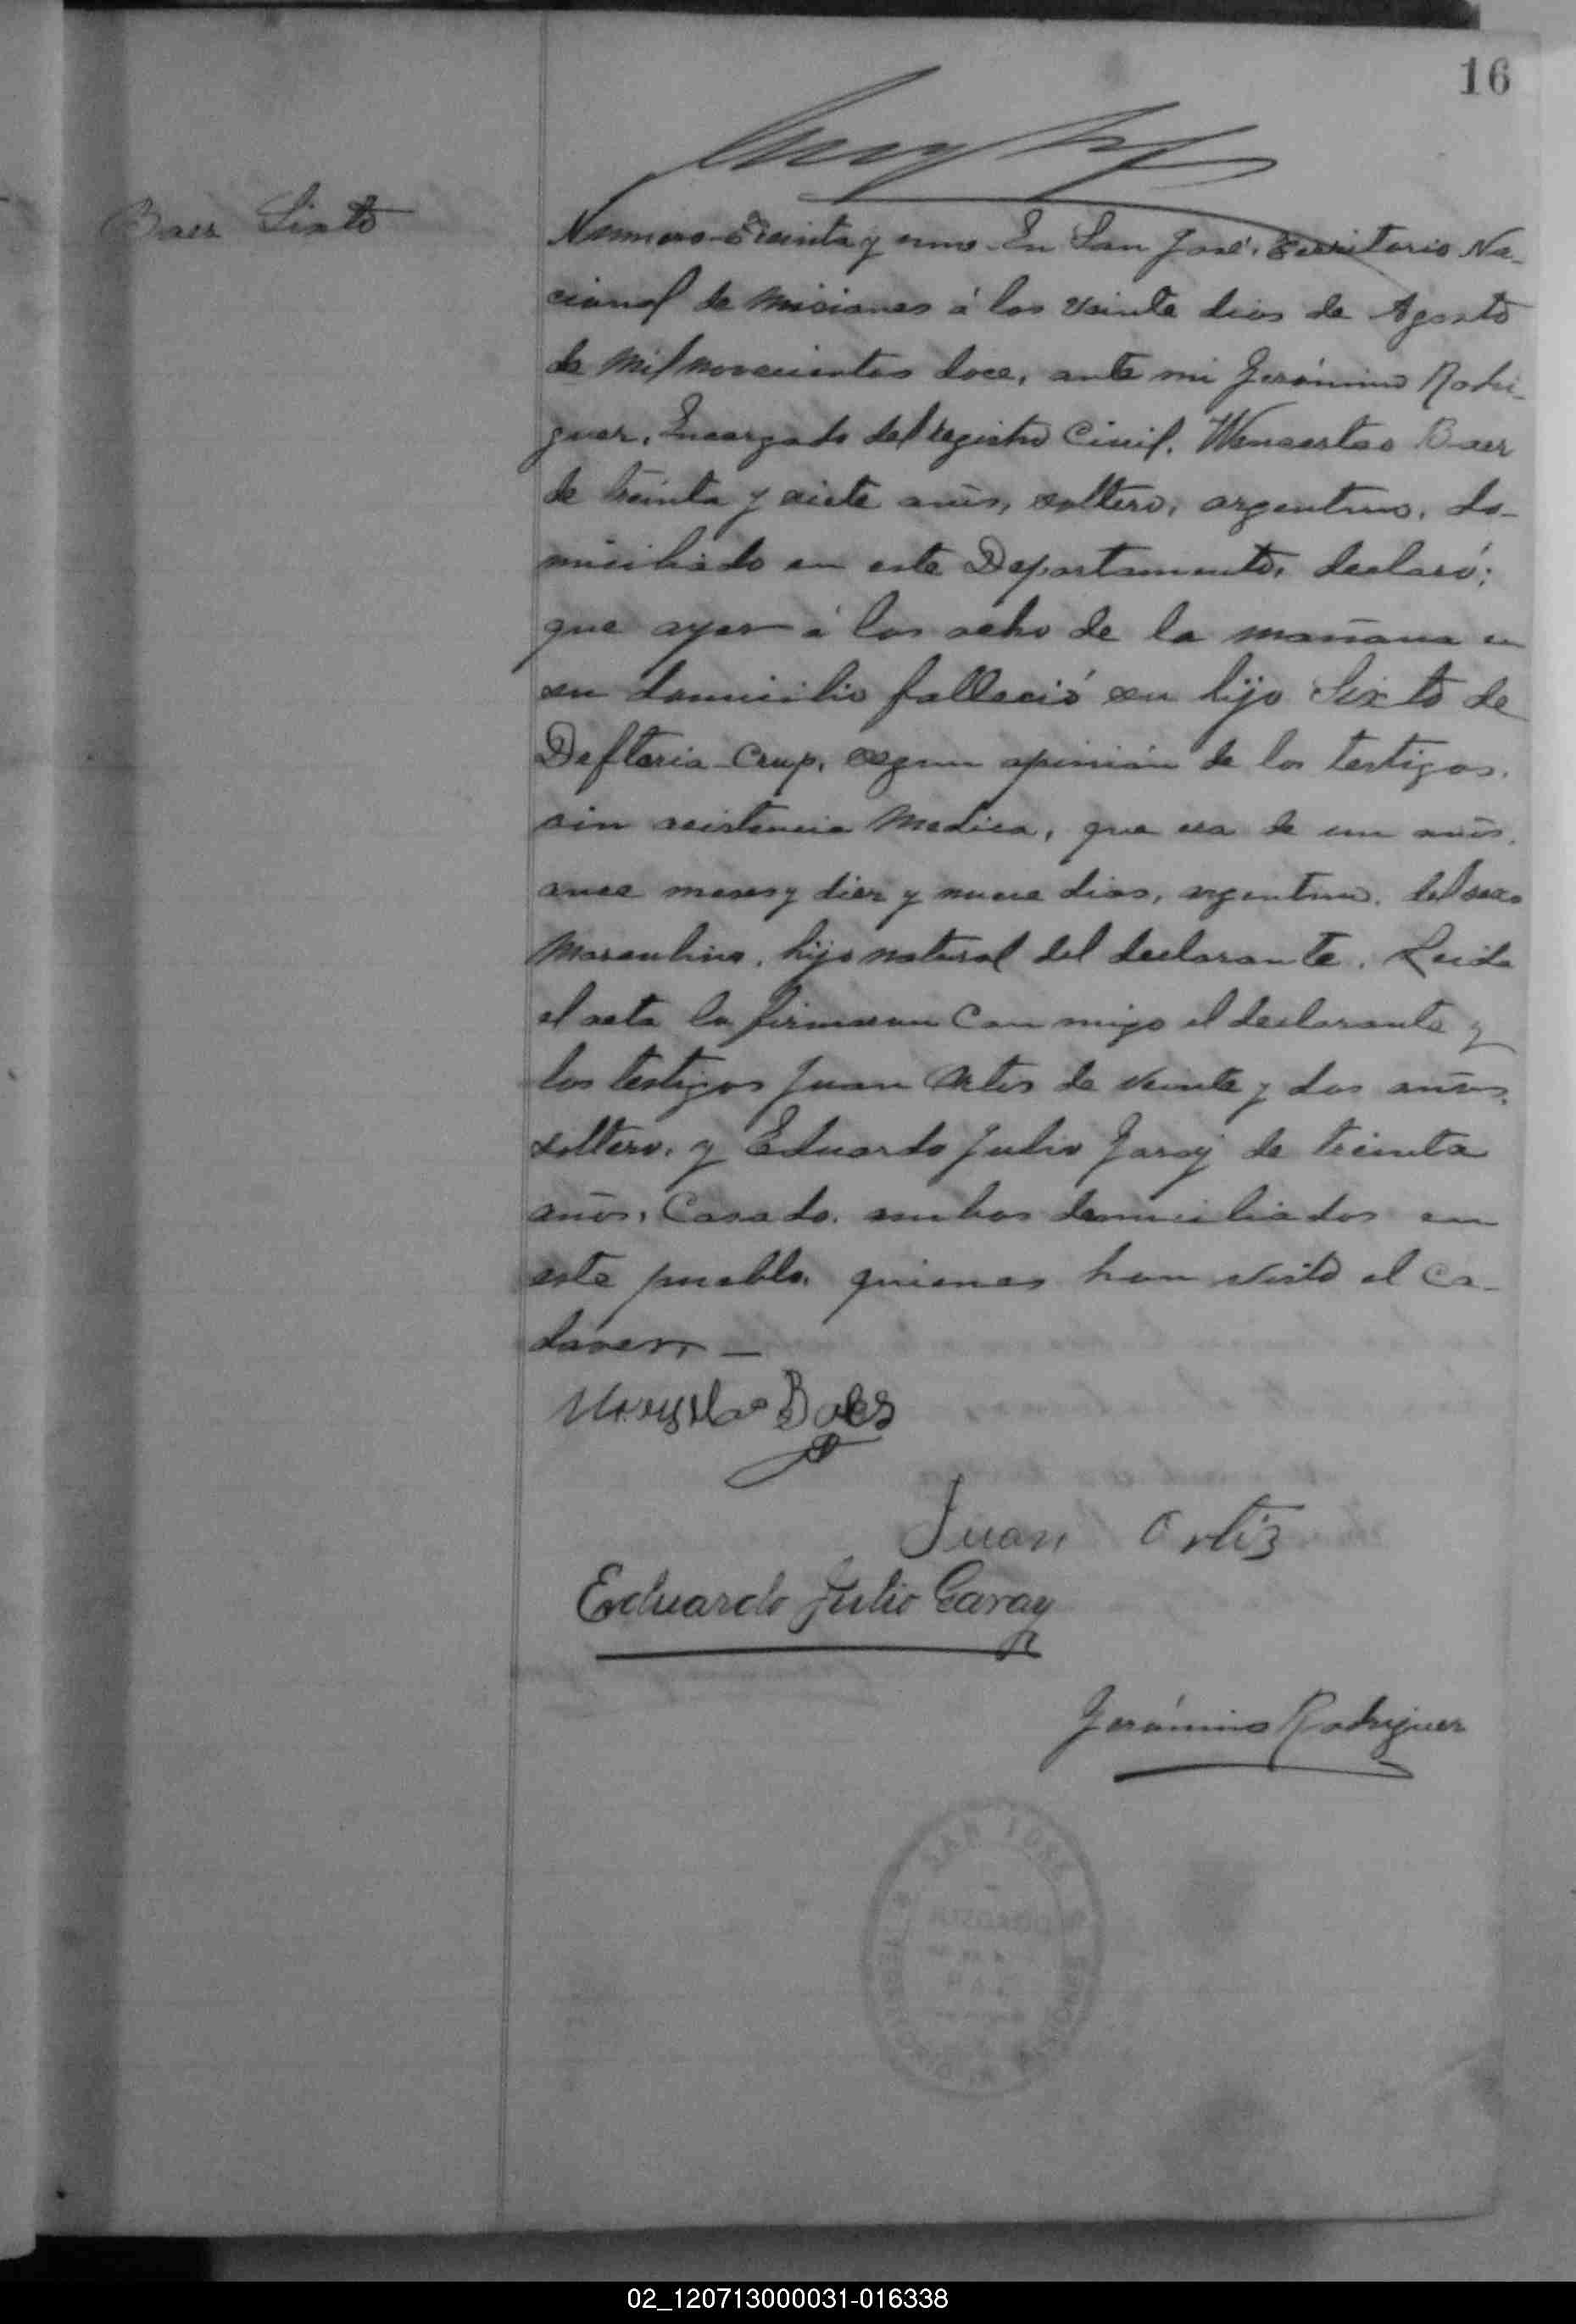 16
Baez Sixto
Numero treinta y uno. En San José, Territorio Na-
cional de Misiones á los veinte dias de Agosto
de mil novecientos doce, ante mi Jerónimo Rodri-
guez, Encargado del registro Civil, Wenceslao Baez
de treinta y siete años, soltero, argentino, do-
miciliado en este Departamento, declaró:
que ayer á las ocho de la mañana en
su domicilio falleció su hijo Sixto de
Difteria Crup, segun opinión de los testigos,
sin asistencia Medica, que era de un año,
once meses y diez y nueve dias, argentino, del sexo
Masculino, hijo natural del declarante. Leida
el acta la firmaron con migo el declarante y
los testigos Juan Ortis de veinte y dos años,
soltero, y Eduardo Julio Garay de treinta
años, Casado, ambos domiciliados en
este pueblo, quienes han visto el Ca-
daver. —
Baes
Juan Ortiz
Eduardo Julio Garay
Jerónimo Rodriguez
SAN JOSE
02_120713000031-016338